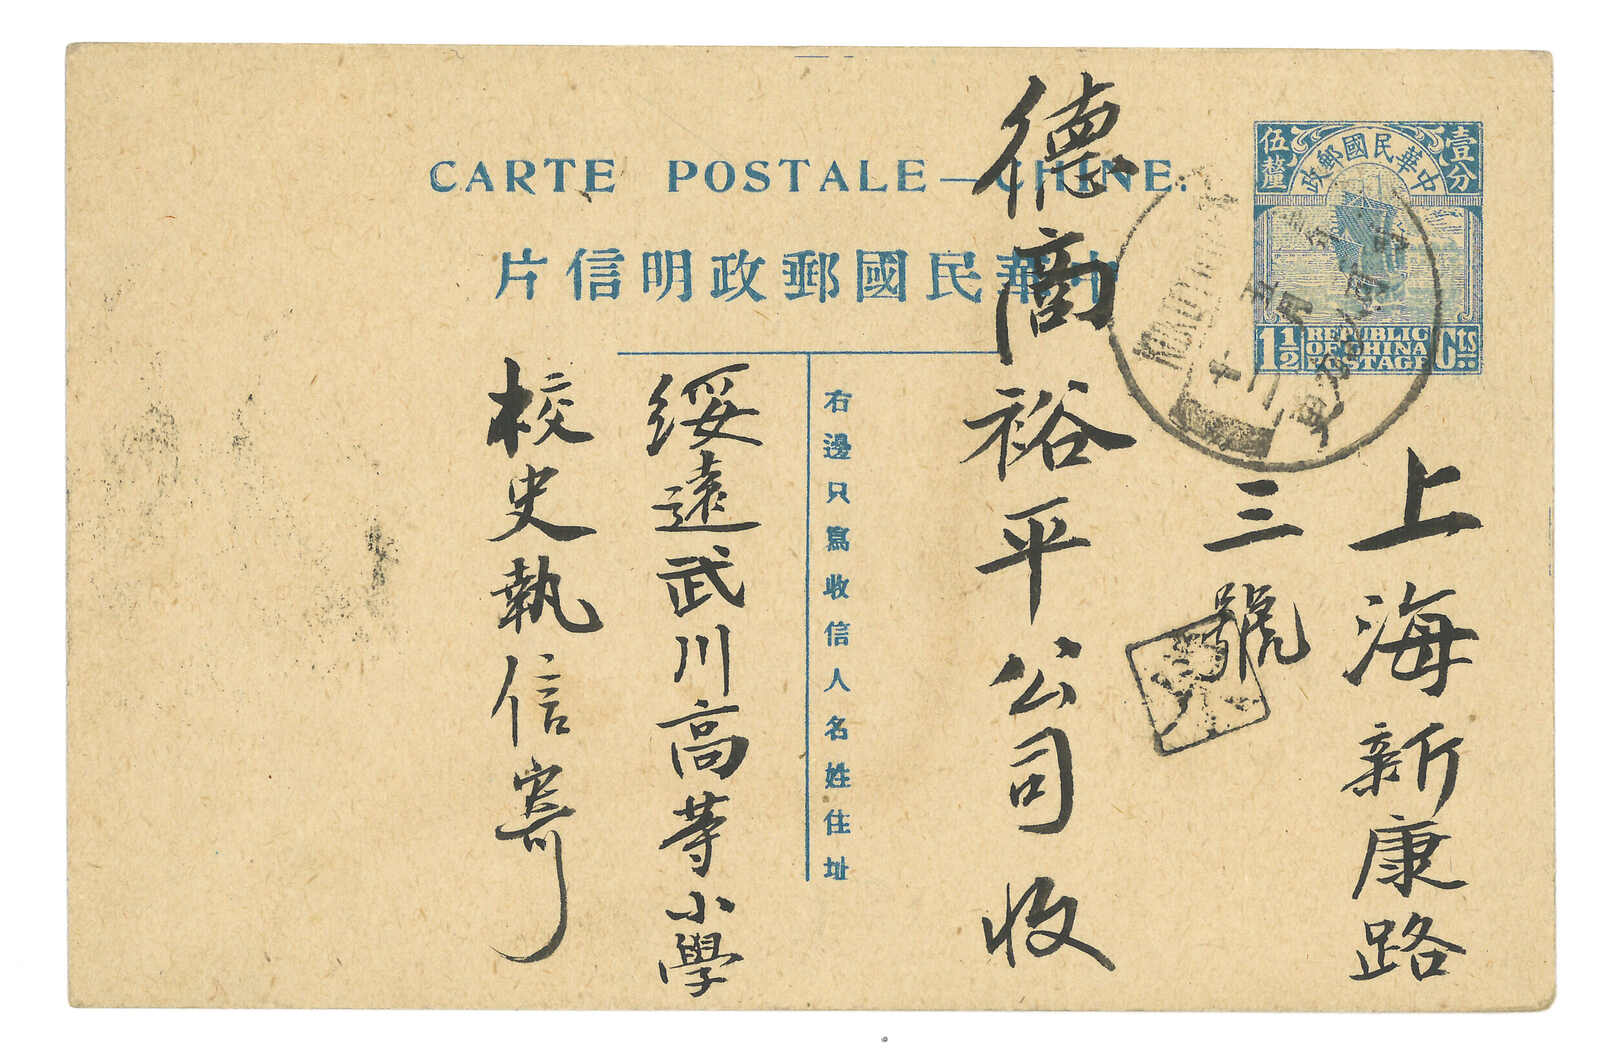 CARTE POSTALE—CHINE.
中華民國郵政明信片
伍釐
中華民國郵政
壹分
1½
REPUBLIC
OF CHINA
POSTAGE
Cts
上海新康路
三號
德商裕平公司收
右邊只寫收信人名姓住址
綏遠武川高等小學
校史執信寄